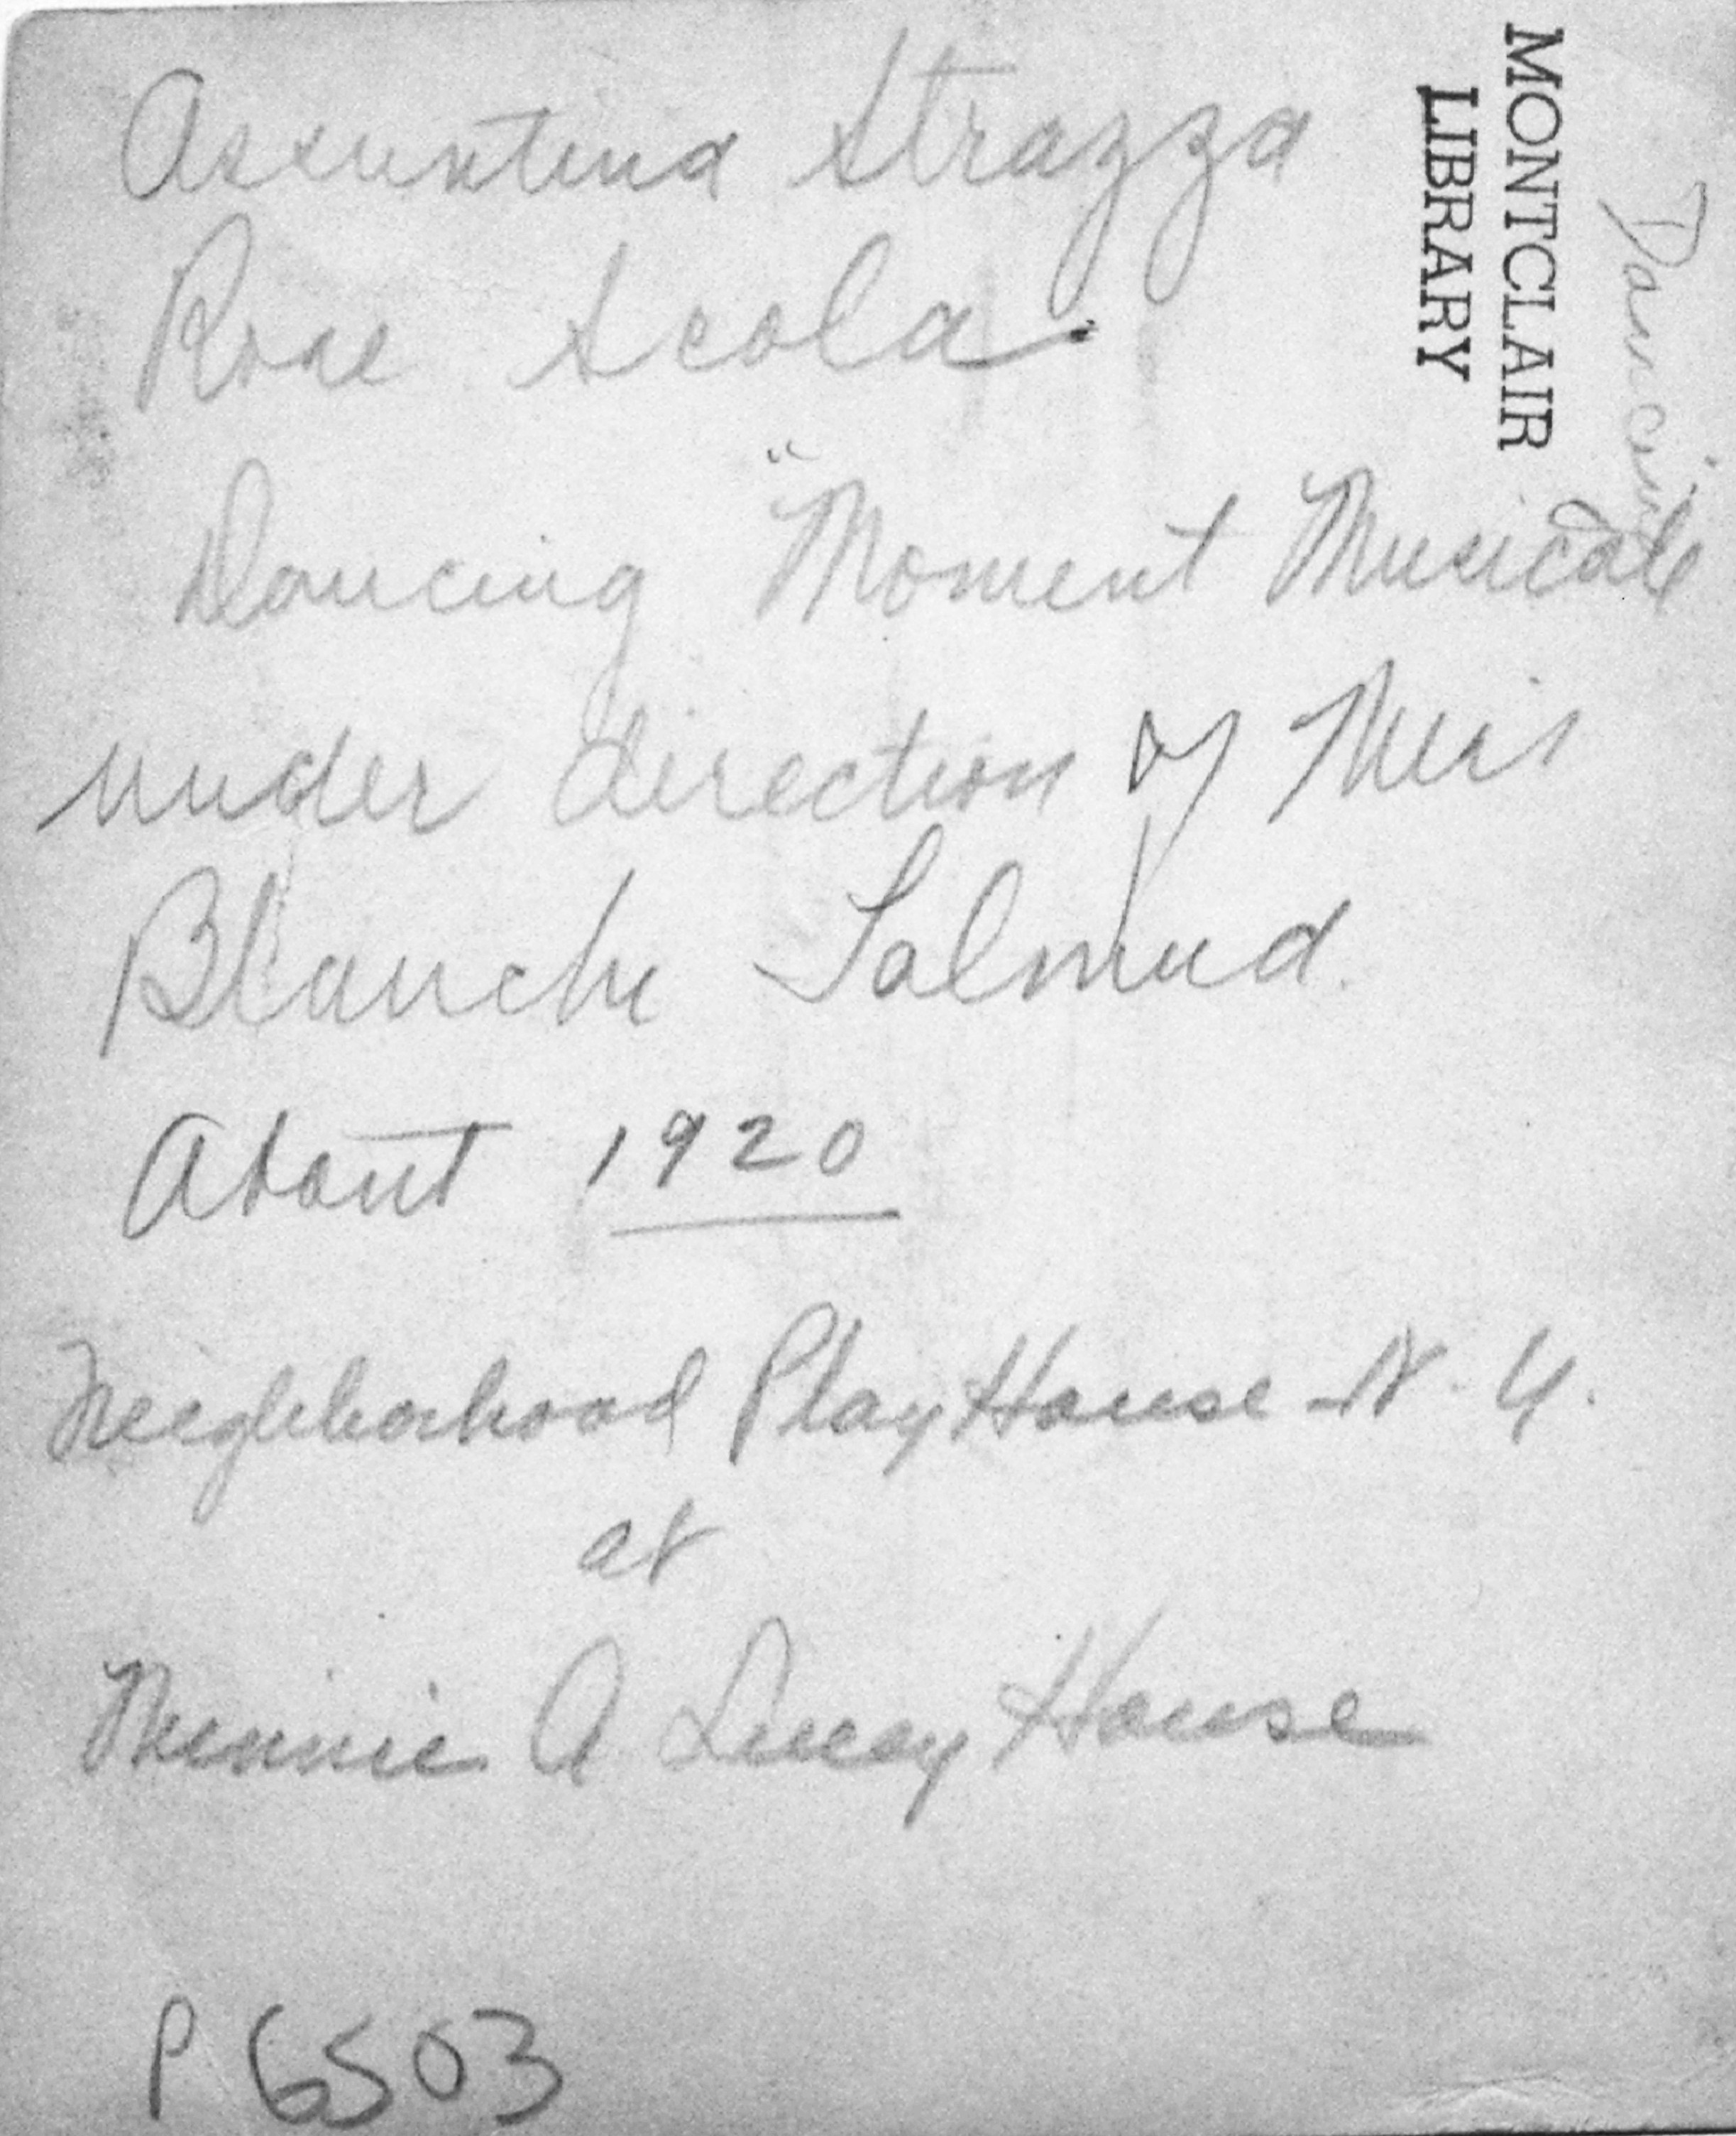 Assuntina Strazza
Rose Scola
Dancing "Moment Musicale
under direction of Miss
Blanche Talmud.
About 1920
Neighborhood PlayHouse N.Y.
at
Minnie A Lucey House
P 6503
MONTCLAIR
LIBRARY
Dancing